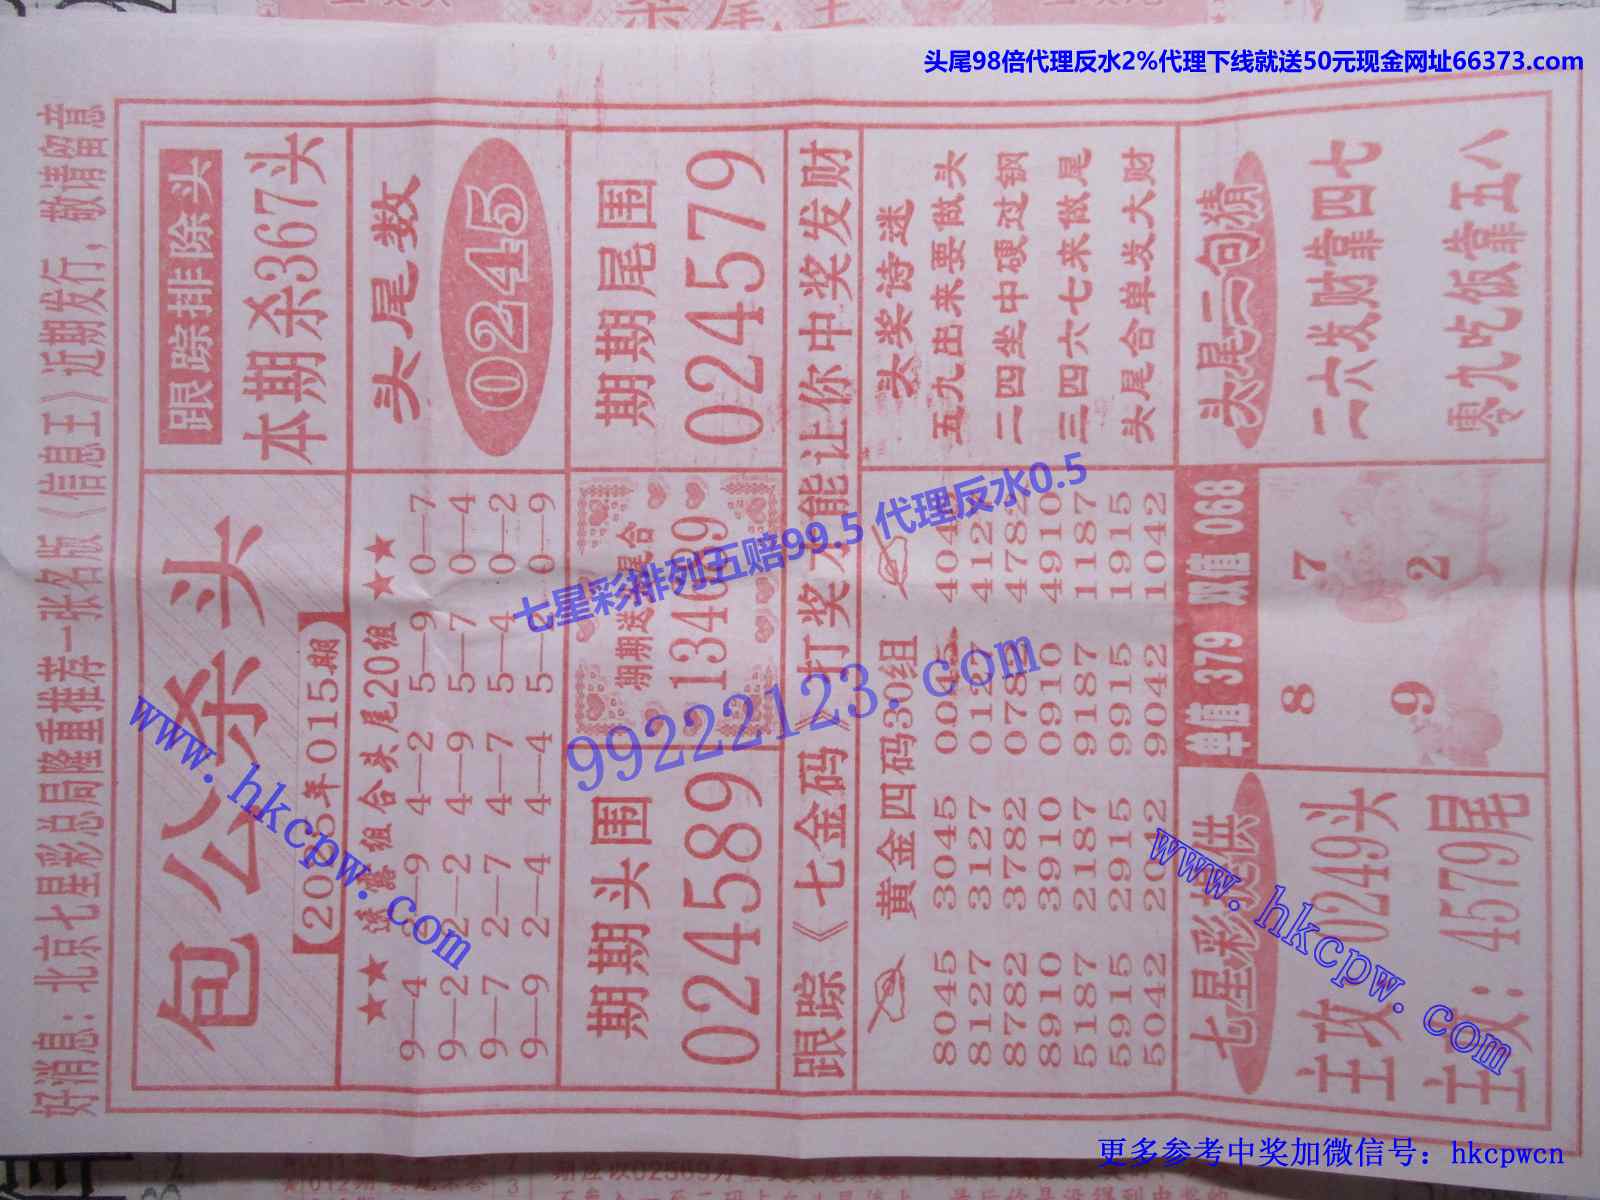 头尾98倍代理反水2%代理下线就送50元现金网址66373.com
好消息：北京七星彩总局隆重推荐一张名版《信息王》近期发行，敬请留意
包公杀头
015期】
跟踪排除头
本期杀367头
★★ 透露组合头尾20组 ★★
9—4 4—2 5—9 0—7
9—2 2—2 4—9 5—7 0—4
9—7 2—7 4—7 5—4 0—2
9—9 2—4 4—4 0—9
头尾数
0245
期期头围
024589
期期送
期期尾围
024579
跟踪《七金码》打奖才能让你中奖发财
黄金四码30组
8045 3045 0045
8127 3127 0127 4127
8782 3782 0782 4782
8910 3910 0910 4910
5187 2187 9187 1187
5915 2915 9915 1915
5042 2042 9042 1042
头奖诗谜
五九出来要做头
二四坐中硬过钢
三四六七来做尾
头尾合单发大财
七星彩提供
主攻：0249头
主攻：4579尾
单值 379 双值 068
8 7
9 2
头尾二句猜
二六发财靠四七
零九吃饭靠五八
七星彩排列五赔99.5 代理反水0.5
99222123.com
www.hkcpw.com
www.hkcpw.com
更多参考中奖加微信号：hkcpwcn